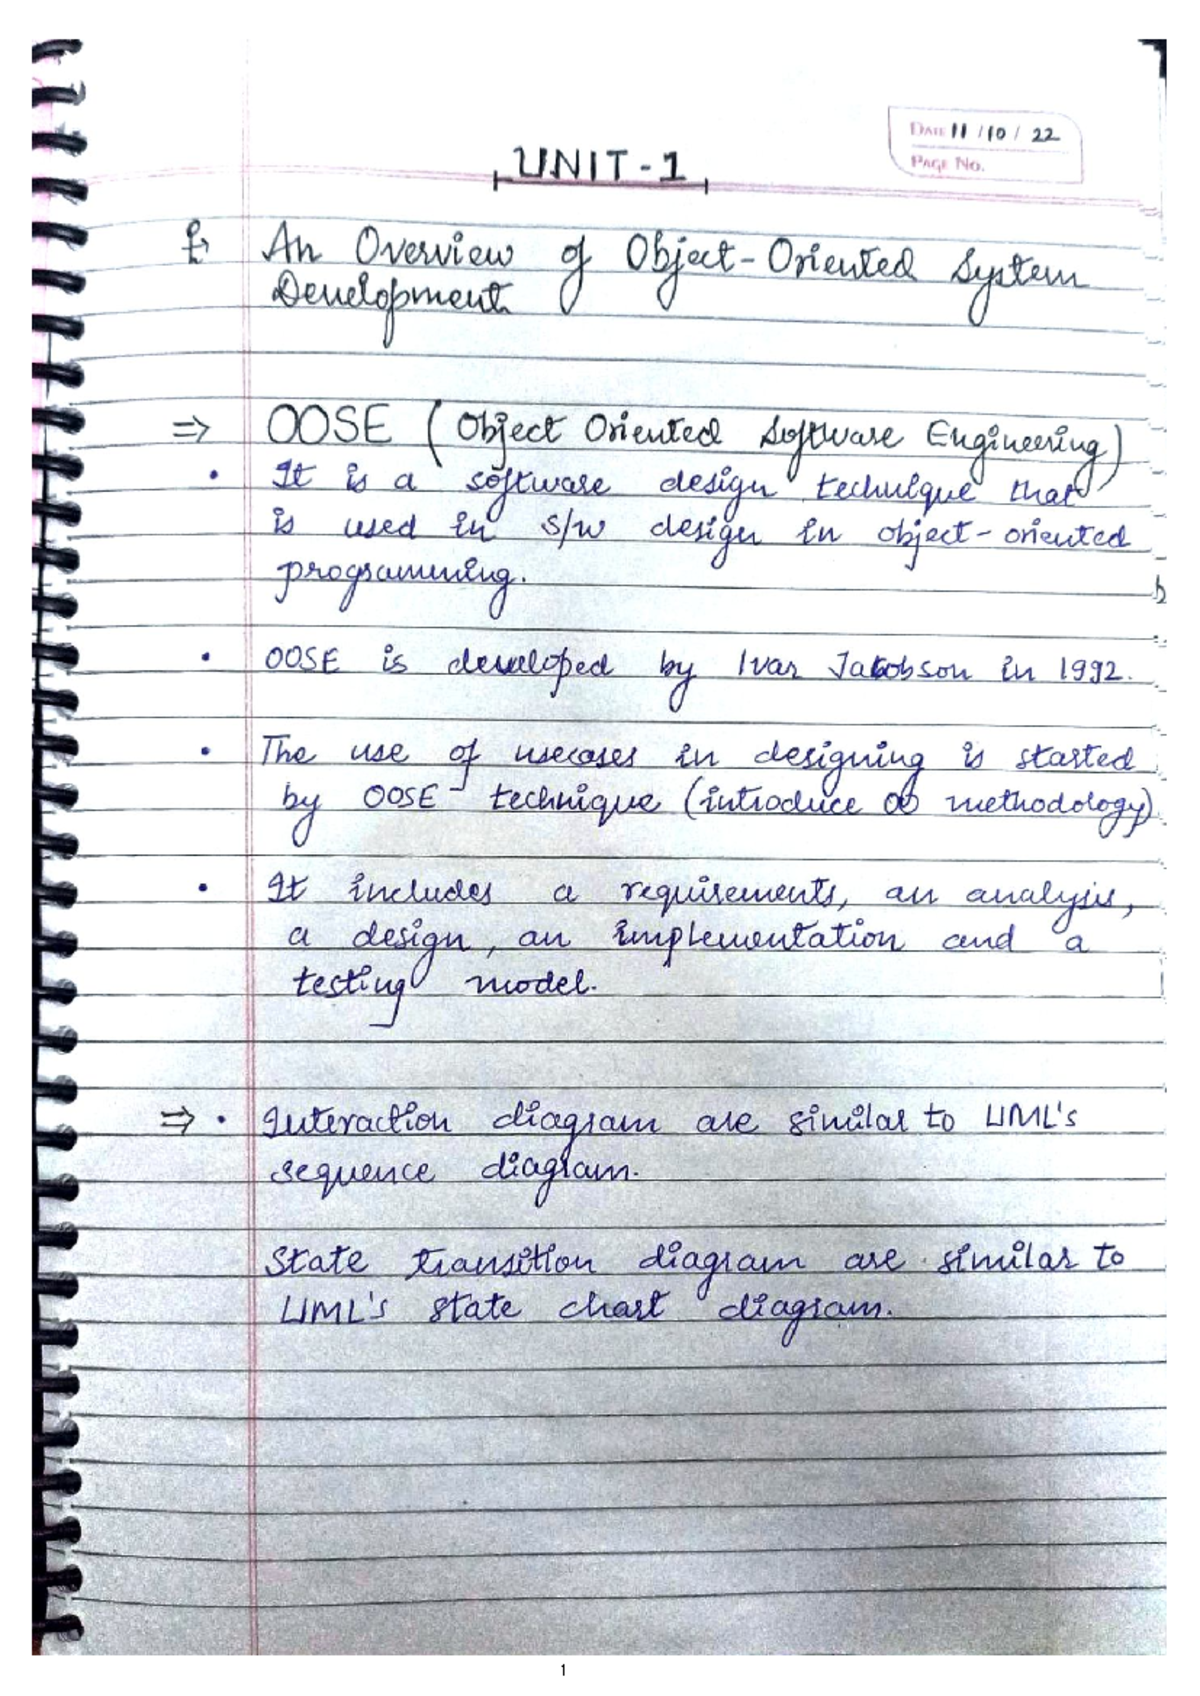 DATE 11 / 10 / 22
PAGE NO.
UNIT - 1
An Overview of Object-Oriented System
Development
⇒ OOSE ( Object Oriented Software Engineering )
• It is a software design technique that
is used in s/w design in object-oriented
programming.
• OOSE is developed by Ivar Jacobson in 1992.
• The use of usecases in designing is started
by OOSE technique (introduce as methodology)
• It includes a requirements, an analysis,
a design, an implementation and a
testing model.
⇒ • Interaction diagram are similar to UML's
sequence diagram.
State transition diagram are similar to
UML's state chart diagram.
1